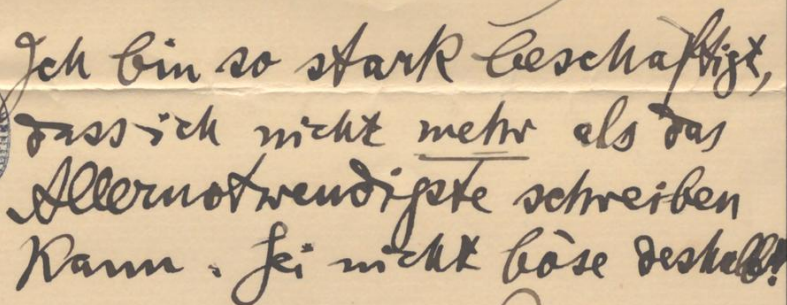 Ich bin so stark beschäftigt,
dass ich nicht mehr als das
Allernotwendigste schreiben
kann. Sei nicht böse deshalb!